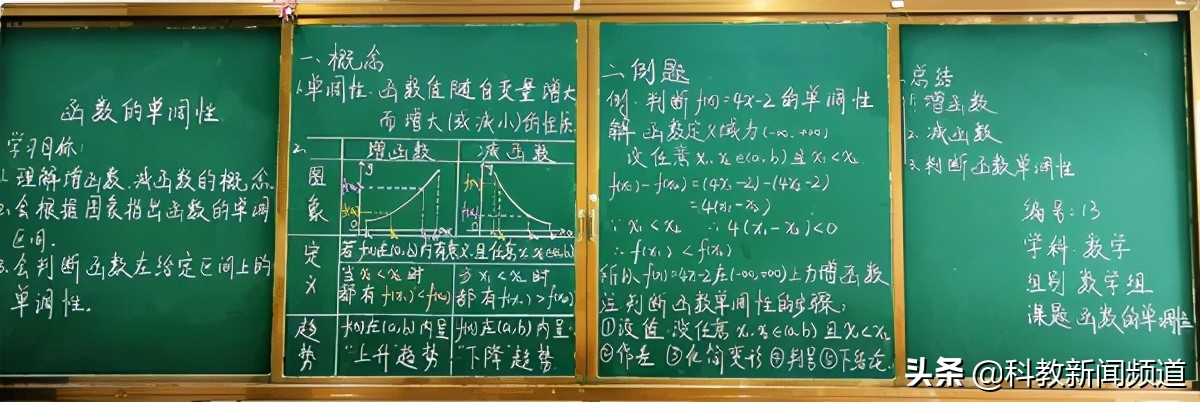 函数的单调性
学习目标:
1. 理解增函数、减函数的概念.
2. 会根据图象指出函数的单调
区间.
3. 会判断函数在给定区间上的
单调性.
一、概念
1.单调性: 函数值随自变量增大
而增大(或减小)的性质.
2. 增函数 减函数
图象
y
y
f(x₂)
f(x₁)
0
0
定义
若f(x)在(a,b)内有意义,且任意x₁,x₂∈(a,b)
当x₁<x₂时 当x₁<x₂时
都有f(x₁)<f(x₂) 都有f(x₁)>f(x₂)
趋势
f(x)在(a,b)内呈 f(x)在(a,b)内呈
"上升"趋势 "下降"趋势
二、例题
例. 判断f(x)=4x-2的单调性
解 函数定义域为(-∞,+∞)
设任意x₁,x₂∈(a,b)且x₁<x₂
f(x₁)-f(x₂)=(4x₁-2)-(4x₂-2)
=4(x₁-x₂)
∵x₁<x₂ ∴4(x₁-x₂)<0
∴f(x₁)<f(x₂)
所以f(x)=4x-2在(-∞,+∞)上为增函数
注:判断函数单调性的步骤:
①设值. 设任意x₁,x₂∈(a,b)且x₁<x₂
②作差 ③化简变形 ④判号 ⑤下结论.
总结
1. 增函数
2. 减函数
3. 判断函数单调性
编号:13
学科:数学
组别 数学组
课题 函数的单调性
头条 @科教新闻频道